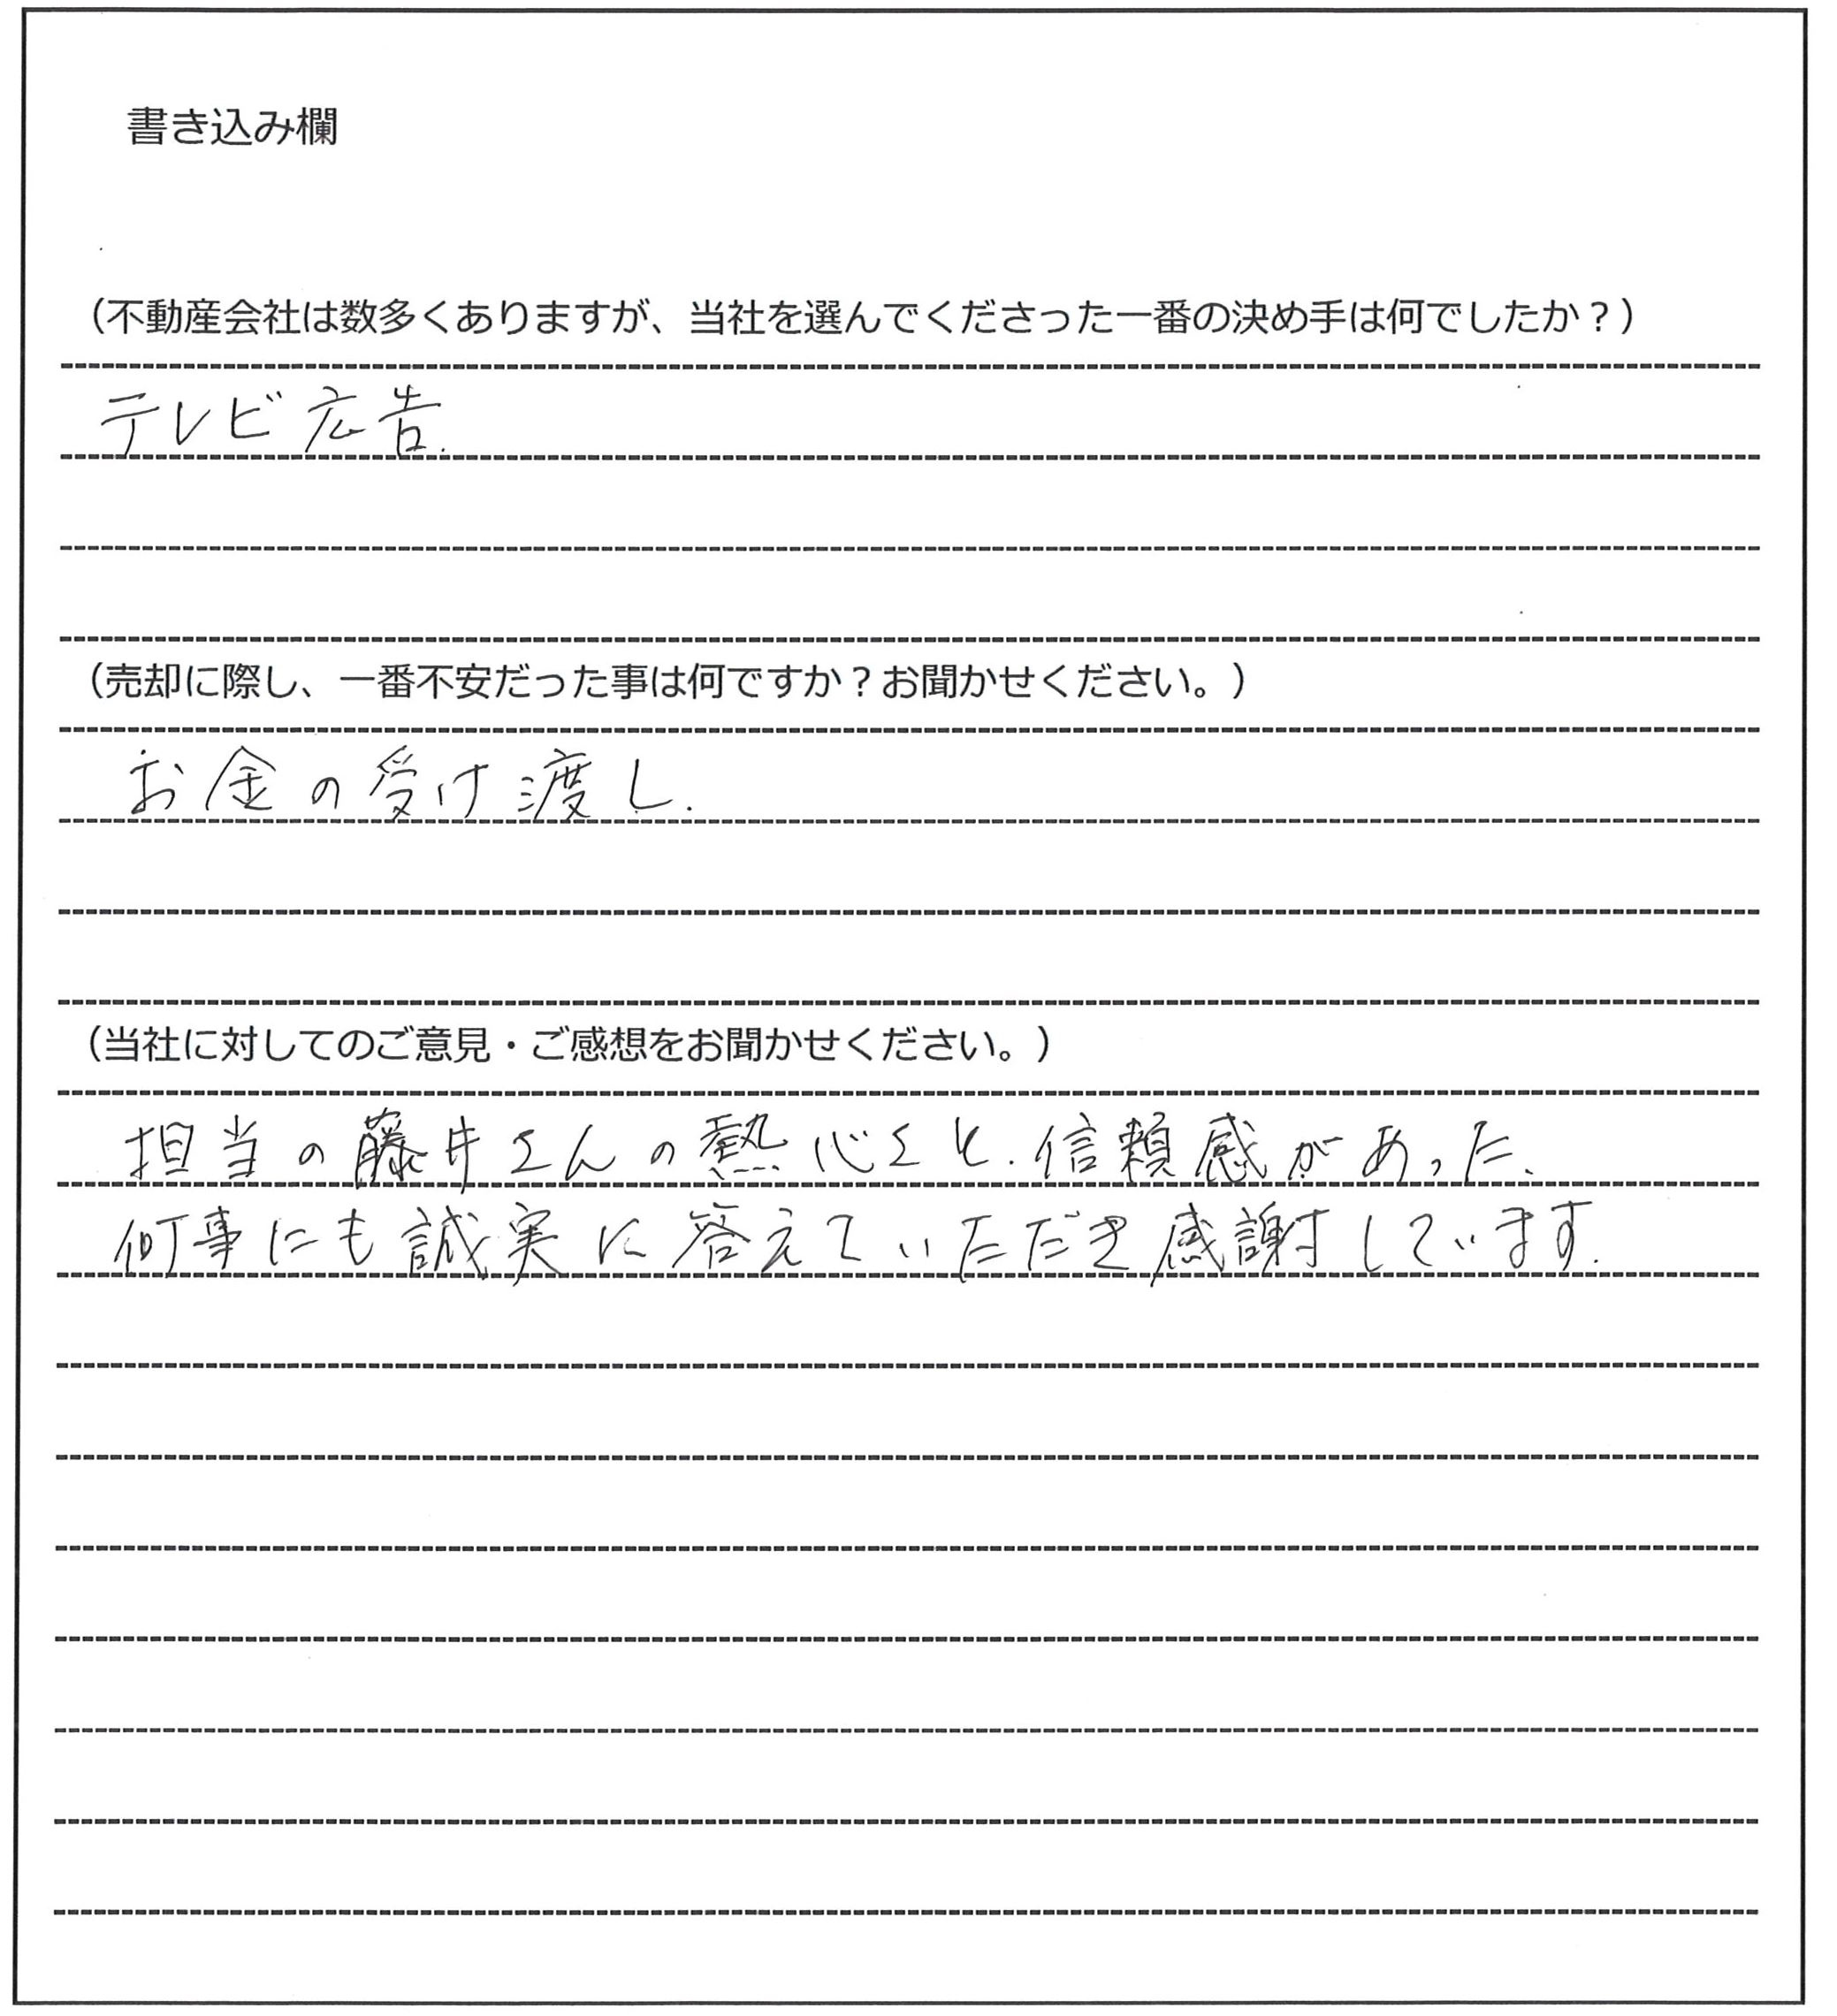 書き込み欄
（不動産会社は数多くありますが、当社を選んでくださった一番の決め手は何でしたか？）
テレビ広告.
（売却に際し、一番不安だった事は何ですか？お聞かせください。）
お金の受け渡し.
（当社に対してのご意見・ご感想をお聞かせください。）
担当の藤井さんの熱心さと.信頼感があった、
何事にも誠実に答えていただき感謝しています.